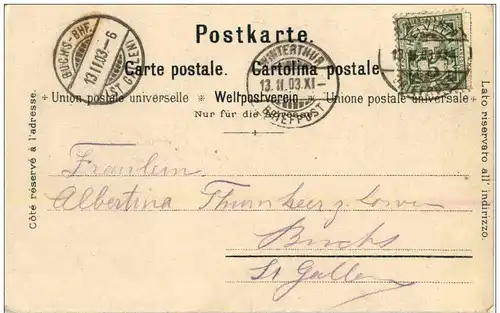 Postkarte.
Carte postale. Cartolina postale
Union postale universelle * Weltpostverein * Unione postale universale
Nur für die Adresse.
BUCHS-BHF.
13.II.03-6
(ST. GALLEN)
WINTERTHUR
13.II.03.XI-
BRIEFPOST
Côté réservé à l'adresse.
Lato riservato all' indirizzo.
Fräulein
Albertina Thurnheer z. Löwen
Buchs
St. Gallen